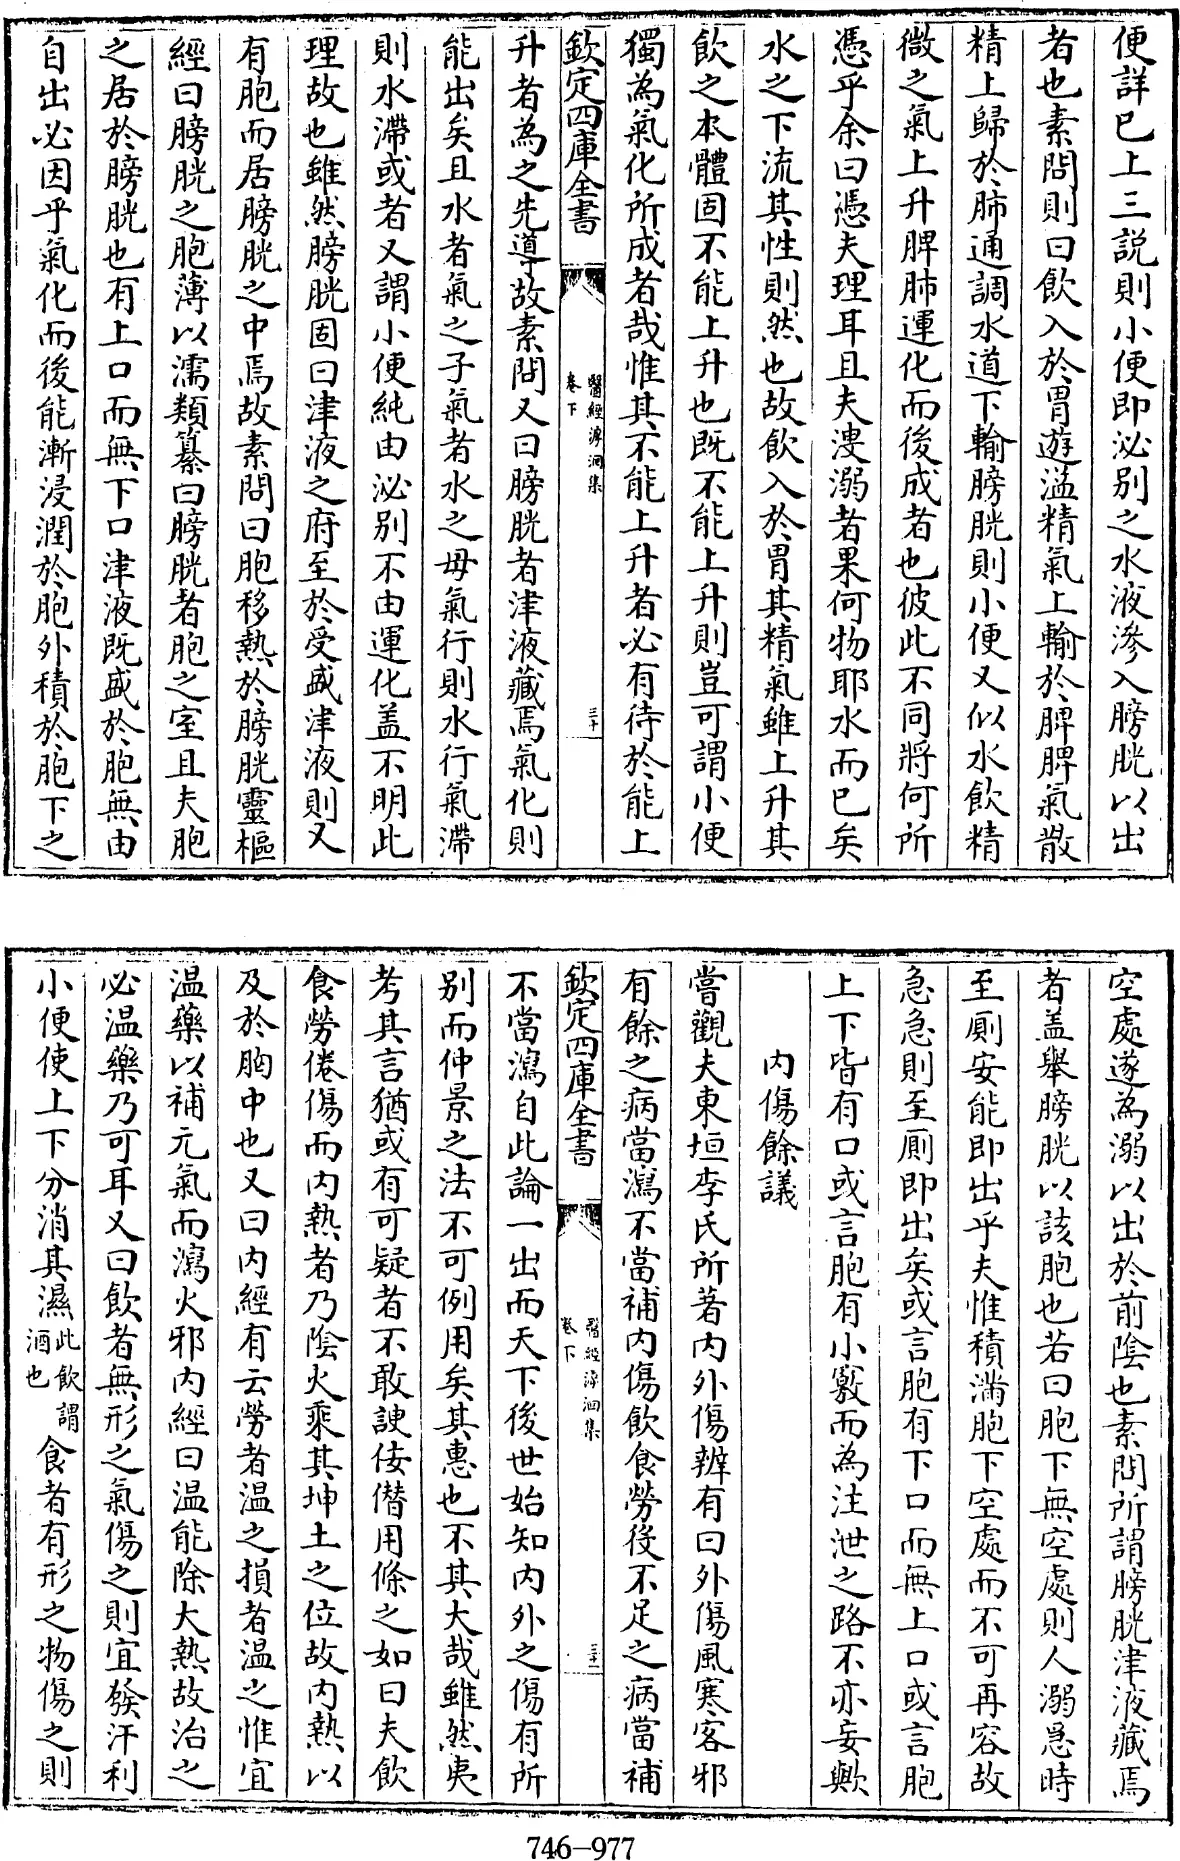 便詳已上三說則小便即泌别之水液滲入膀胱以出
者也素問則曰飲入於胃遊溢精氣上輸於脾脾氣散
精上歸於肺通調水道下輸膀胱則小便又似水飲精
微之氣上升脾肺運化而後成者也彼此不同將何所
憑乎余曰憑夫理耳且夫溲溺者果何物耶水而已矣
水之下流其性則然也故飲入於胃其精氣雖上升其
飲之本體固不能上升也既不能上升則豈可謂小便
獨為氣化所成者哉惟其不能上升者必有待於能上
欽定四庫全書
醫經溯洄集
卷下
三十
升者為之先導故素問又曰膀胱者津液藏焉氣化則
能出矣且水者氣之子氣者水之母氣行則水行氣滯
則水滯或者又謂小便純由泌别不由運化盖不明此
理故也雖然膀胱固曰津液之府至於受盛津液則又
有胞而居膀胱之中焉故素問曰胞移熱於膀胱靈樞
經曰膀胱之胞薄以濡類纂曰膀胱者胞之室且夫胞
之居於膀胱也有上口而無下口津液既盛於胞無由
自出必因乎氣化而後能漸浸潤於胞外積於胞下之
空處遂為溺以出於前陰也素問所謂膀胱津液藏焉
者盖舉膀胱以該胞也若曰胞下無空處則人溺急時
至厠安能即出乎夫惟積滿胞下空處而不可再容故
急急則至厠即出矣或言胞有下口而無上口或言胞
上下皆有口或言胞有小竅而為注泄之路不亦妄歟
内傷餘議
嘗觀夫東垣李氏所著内外傷辨有曰外傷風寒客邪
有餘之病當瀉不當補内傷飲食勞役不足之病當補
欽定四庫全書
醫經溯洄集
卷下
三十一
不當瀉自此論一出而天下後世始知内外之傷有所
别而仲景之法不可例用矣其惠也不其大哉雖然夷
考其言猶或有可疑者不敢諛佞僭用條之如曰夫飲
食勞倦傷而内熱者乃陰火乘其坤土之位故内熱以
及於胸中也又曰内經有云勞者温之損者温之惟宜
温藥以補元氣而瀉火邪内經曰温能除大熱故治之
必温藥乃可耳又曰飲者無形之氣傷之則宜發汗利
小便使上下分消其濕此飲謂酒也食者有形之物傷之則
746-977